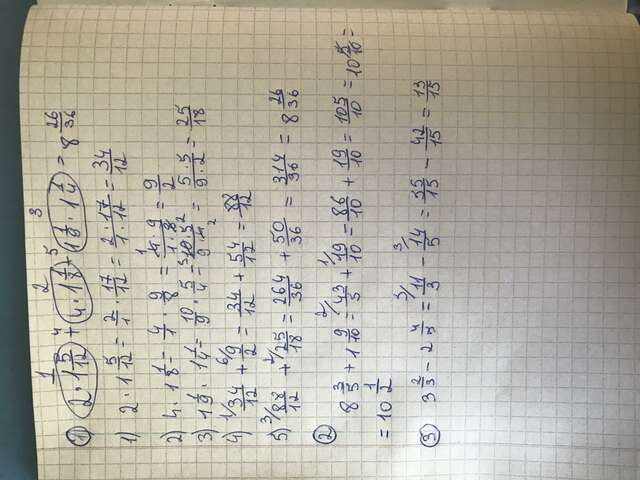 ① 2 · 1 5/12 + 4 · 1 1/8 + 1 1/9 · 1 1/4 = 8 26/36
1) 2 · 1 5/12 = 2/1 · 17/12 = 2 · 17/1 · 12 = 34/12
2) 4 · 1 1/8 = 4/1 · 9/8 = 4 · 9/1 · 8 = 9/2
3) 1 1/9 · 1 1/4 = 10/9 · 5/4 = 10 · 5/9 · 4 = 5 · 5/9 · 2 = 25/18
4) 34/12 + 9/2 = 34/12 + 54/12 = 88/12
5) 88/12 + 25/18 = 264/36 + 50/36 = 314/36 = 8 26/36
② 8 3/5 + 1 9/10 = 43/5 + 19/10 = 86/10 + 19/10 = 105/10 = 10 5/10 =
= 10 1/2
③ 3 2/3 - 2 4/5 = 11/3 - 14/5 = 55/15 - 42/15 = 13/15